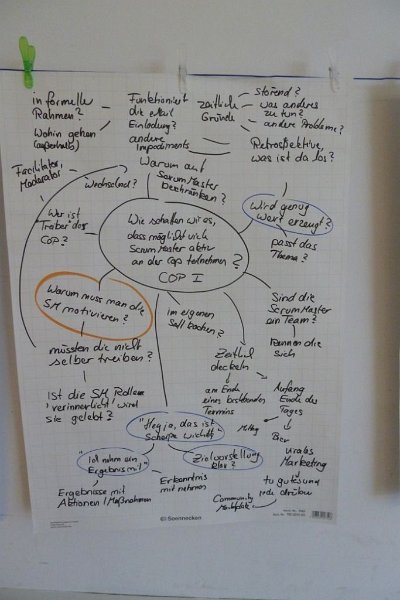 informelle
Rahmen?
Wohin gehen
(außerhalb)
Facilitator,
Moderator
Funktioniert
die eMail
Einladung?
andere
Impediments
zeitliche
Gründe
störend?
was anderes
zu tun?
andere Probleme?
Retrospektive,
was ist da los?
Warum auf
ScrumMaster
beschränken?
wechselnd?
Wer ist
Treiber der
COP?
Wird genug
Wert erzeugt?
passt das
Thema?
Wie schaffen wir es,
dass möglichst viele
ScrumMaster aktiv
an der Cop teilnehmen?
COP I
Warum muss man die
SM motivieren?
müssten die nicht
selber treiben?
Ist die SM Rolle
verinnerlicht, wird
sie gelebt?
im eigenen
Saft
Sind die
ScrumMaster
ein Team?
Kennen die
sich
Zeitlich
deckeln
am Ende
eines bestehenden
Termins
Anfang
Ende des
Tages
Mittag
Bier
Virales
Marketing
tu gutes und
rede drüber
Community
Marktplatz
"Hey ja, das ist
Scheiße wichtig"
"Ich nehm ein
Ergebnis mit"
Zielvorstellung
klar?
Ergebnisse mit
Aktionen / Maßnahmen
Erkenntnis
mit nehmen
Soennecken